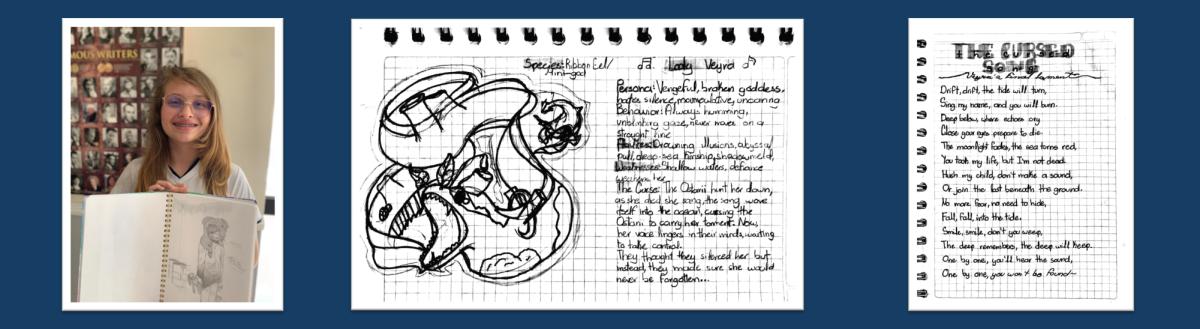 MOUS WRITERS
Species: Ribbon Eel/
Mini-god
Lady Veyra
Persona: Vengeful, broken goddess,
hates silence, manipulative, uncanny
Behavior: Always humming,
unblinking gaze, never moves on a
straight line
Powers: Drowning illusions, abyssal
pull, deep-sea kinship, shadowmeld,
Weaknesses: Shallow waters, defiance
weakens her
The Curse: The Ostarii hunt her down,
as she died she sang, the song wove
itself into the ocean, cursing the
Ostarii to carry her torment. Now,
her voice lingers in their minds, waiting
to take control.
They thought they silenced her but
instead, they made sure she would
never be forgotten...
THE CURSED
SONG
Veyra's final lament
Drift, drift, the tide will turn,
Sing my name, and you will burn.
Deep below, where echoes cry
Close your eyes prepare to die.
The moonlight fades, the sea turns red,
You took my life, but I'm not dead.
Hush my child, don't make a sound,
Or join the lost beneath the ground.
No more fear, no need to hide,
Fall, fall, into the tide.
Smile, smile, don't you weep,
The deep remembers, the deep will keep.
One by one, you'll hear the sound,
One by one, you won't be found~